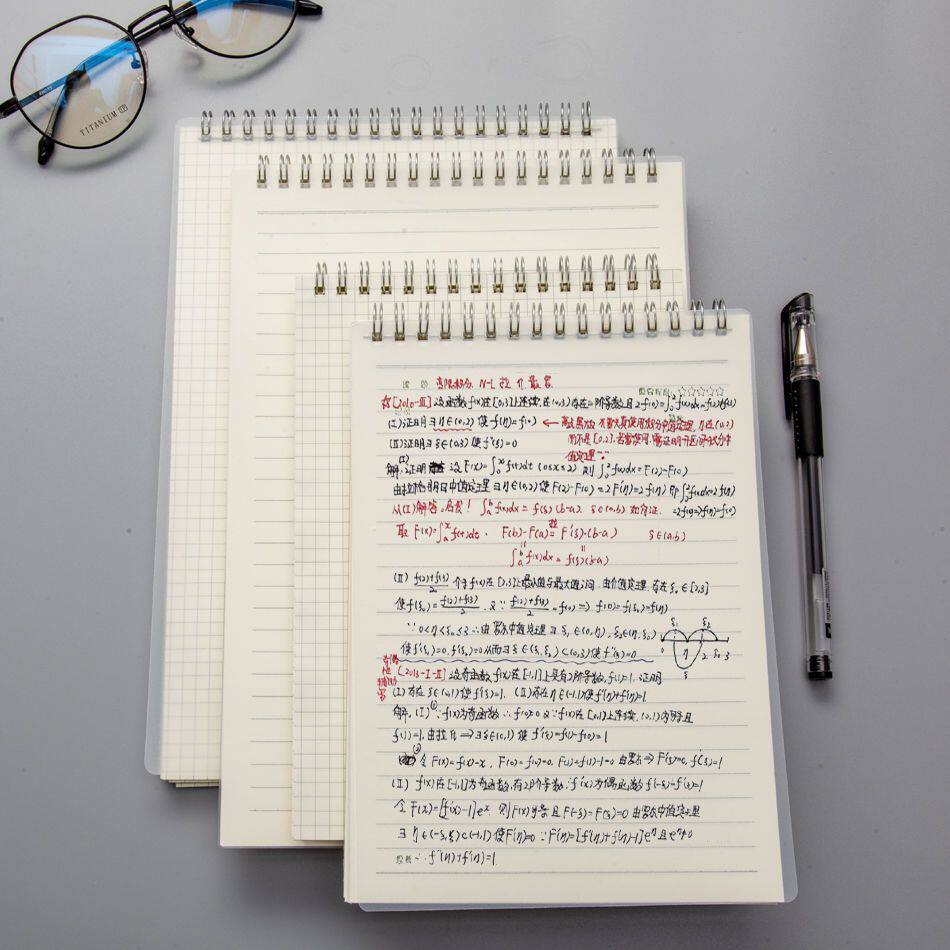 TITANIUM IP
N-L
☆[2010-Ⅲ] 设函数f(x)在[0,3]上连续,在(0,3)存在二阶导数且2f(0)=∫₀²f(x)dx=f(2)+f(3)
(Ⅰ)证明∃η∈(0,2)使f(η)=f(0)
(Ⅱ)证明∃ξ∈(0,3)使f''(ξ)=0
而不是[0,2].若需使用,需证明
值定理
解:证明 设F(x)=∫₀ˣf(t)dt (0≤x≤2) 则∫₀²f(x)dx=F(2)-F(0)
由拉格朗日中值定理∃η∈(0,2)使F(2)-F(0)=2F'(η)=2f(η) 即∫₀²f(x)dx=2f(η)
从(Ⅰ)解答,启发! ∫ₐᵇf(x)dx=f(ξ)(b-a). ξ∈(a,b) 如何证. =2f(0)⇒f(η)=f(0)
取F(x)=∫ₐˣf(t)dt. F(b)-F(a)=F'(ξ)·(b-a) ξ∈(a,b)
∫ₐᵇf(x)dx=f(ξ)(b-a)
(Ⅱ) f(2)+f(3)/2 介于f(x)在[2,3]上最小值与最大值之间.由介值定理,存在ξ₀∈[2,3]
使f(ξ₀)=f(2)+f(3)/2. 又∵f(2)+f(3)/2=f(0)⇒f(0)=f(ξ₀)=f(η)
∵0<η<ξ₀≤3∴由罗尔中值定理∃ξ₁∈(0,η),ξ₂∈(η,ξ₀)
使f'(ξ₁)=0,f'(ξ₂)=0从而∃ξ∈(ξ₁,ξ₂)⊂(0,3)使f''(ξ)=0
ξ₁ ξ₂
0 η 2 ξ₀ 3
ξ
[2013-Ⅰ-Ⅱ] 设奇函数f(x)在[-1,1]上具有2阶导数,f(1)=1.证明
(Ⅰ)存在ξ∈(0,1)使f'(ξ)=1. (Ⅱ)存在η∈(-1,1)使f''(η)+f'(η)=1.
解,(Ⅰ)①∵f(x)为奇函数∴f(0)=0又∵f(x)在[0,1]上连续,(0,1)内可导且
f(1)=1.由拉格⇒∃ξ∈(0,1)使f'(ξ)=f(1)-f(0)=1
② 令F(x)=f(x)-x, F(0)=f(0)=0, F(1)=f(1)-1=0 由罗尔⇒F'(ξ)=0, f'(ξ)=1
(Ⅱ) f(x)在[-1,1]为奇函数,有2阶导数,∴f'(x)为偶函数f'(-ξ)=f'(ξ)=1
令F(x)=[f'(x)-1]eˣ 则F(x)可导且F(-ξ)=F(ξ)=0 由罗尔中值定理
∃η∈(-ξ,ξ)⊂(-1,1)使F'(η)=0∵F'(η)=[f''(η)+f'(η)-1]e^η且e^η≠0
∴f''(η)+f'(η)=1